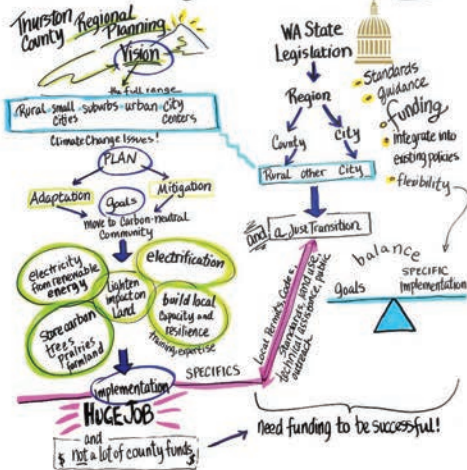 Thurston County
Regional Planning
Vision
the full range
Rural small cities suburbs urban City centers
Climate Change Issues!
PLAN
Adaptation
Mitigation
goals
move to Carbon-neutral
Community
electricity
from renewable
energy
electrification
Lighten
impact on
Land
build local
Capacity and
resilience
training, expertise
Store carbon
trees
Prairies
farmland
Implementation
SPECIFICS
HUGE JOB
and
$ not a lot of county funds $
WA State
Legislation
Region
County
City
Rural other City
and a Just Transition
Local Permits, Codes,
Standards, land use,
technical assistance, public
outreach
Standards
guidance
funding
integrate into
existing policies
flexibility
balance
goals
SPECIFIC
Implementation
need funding to be successful!